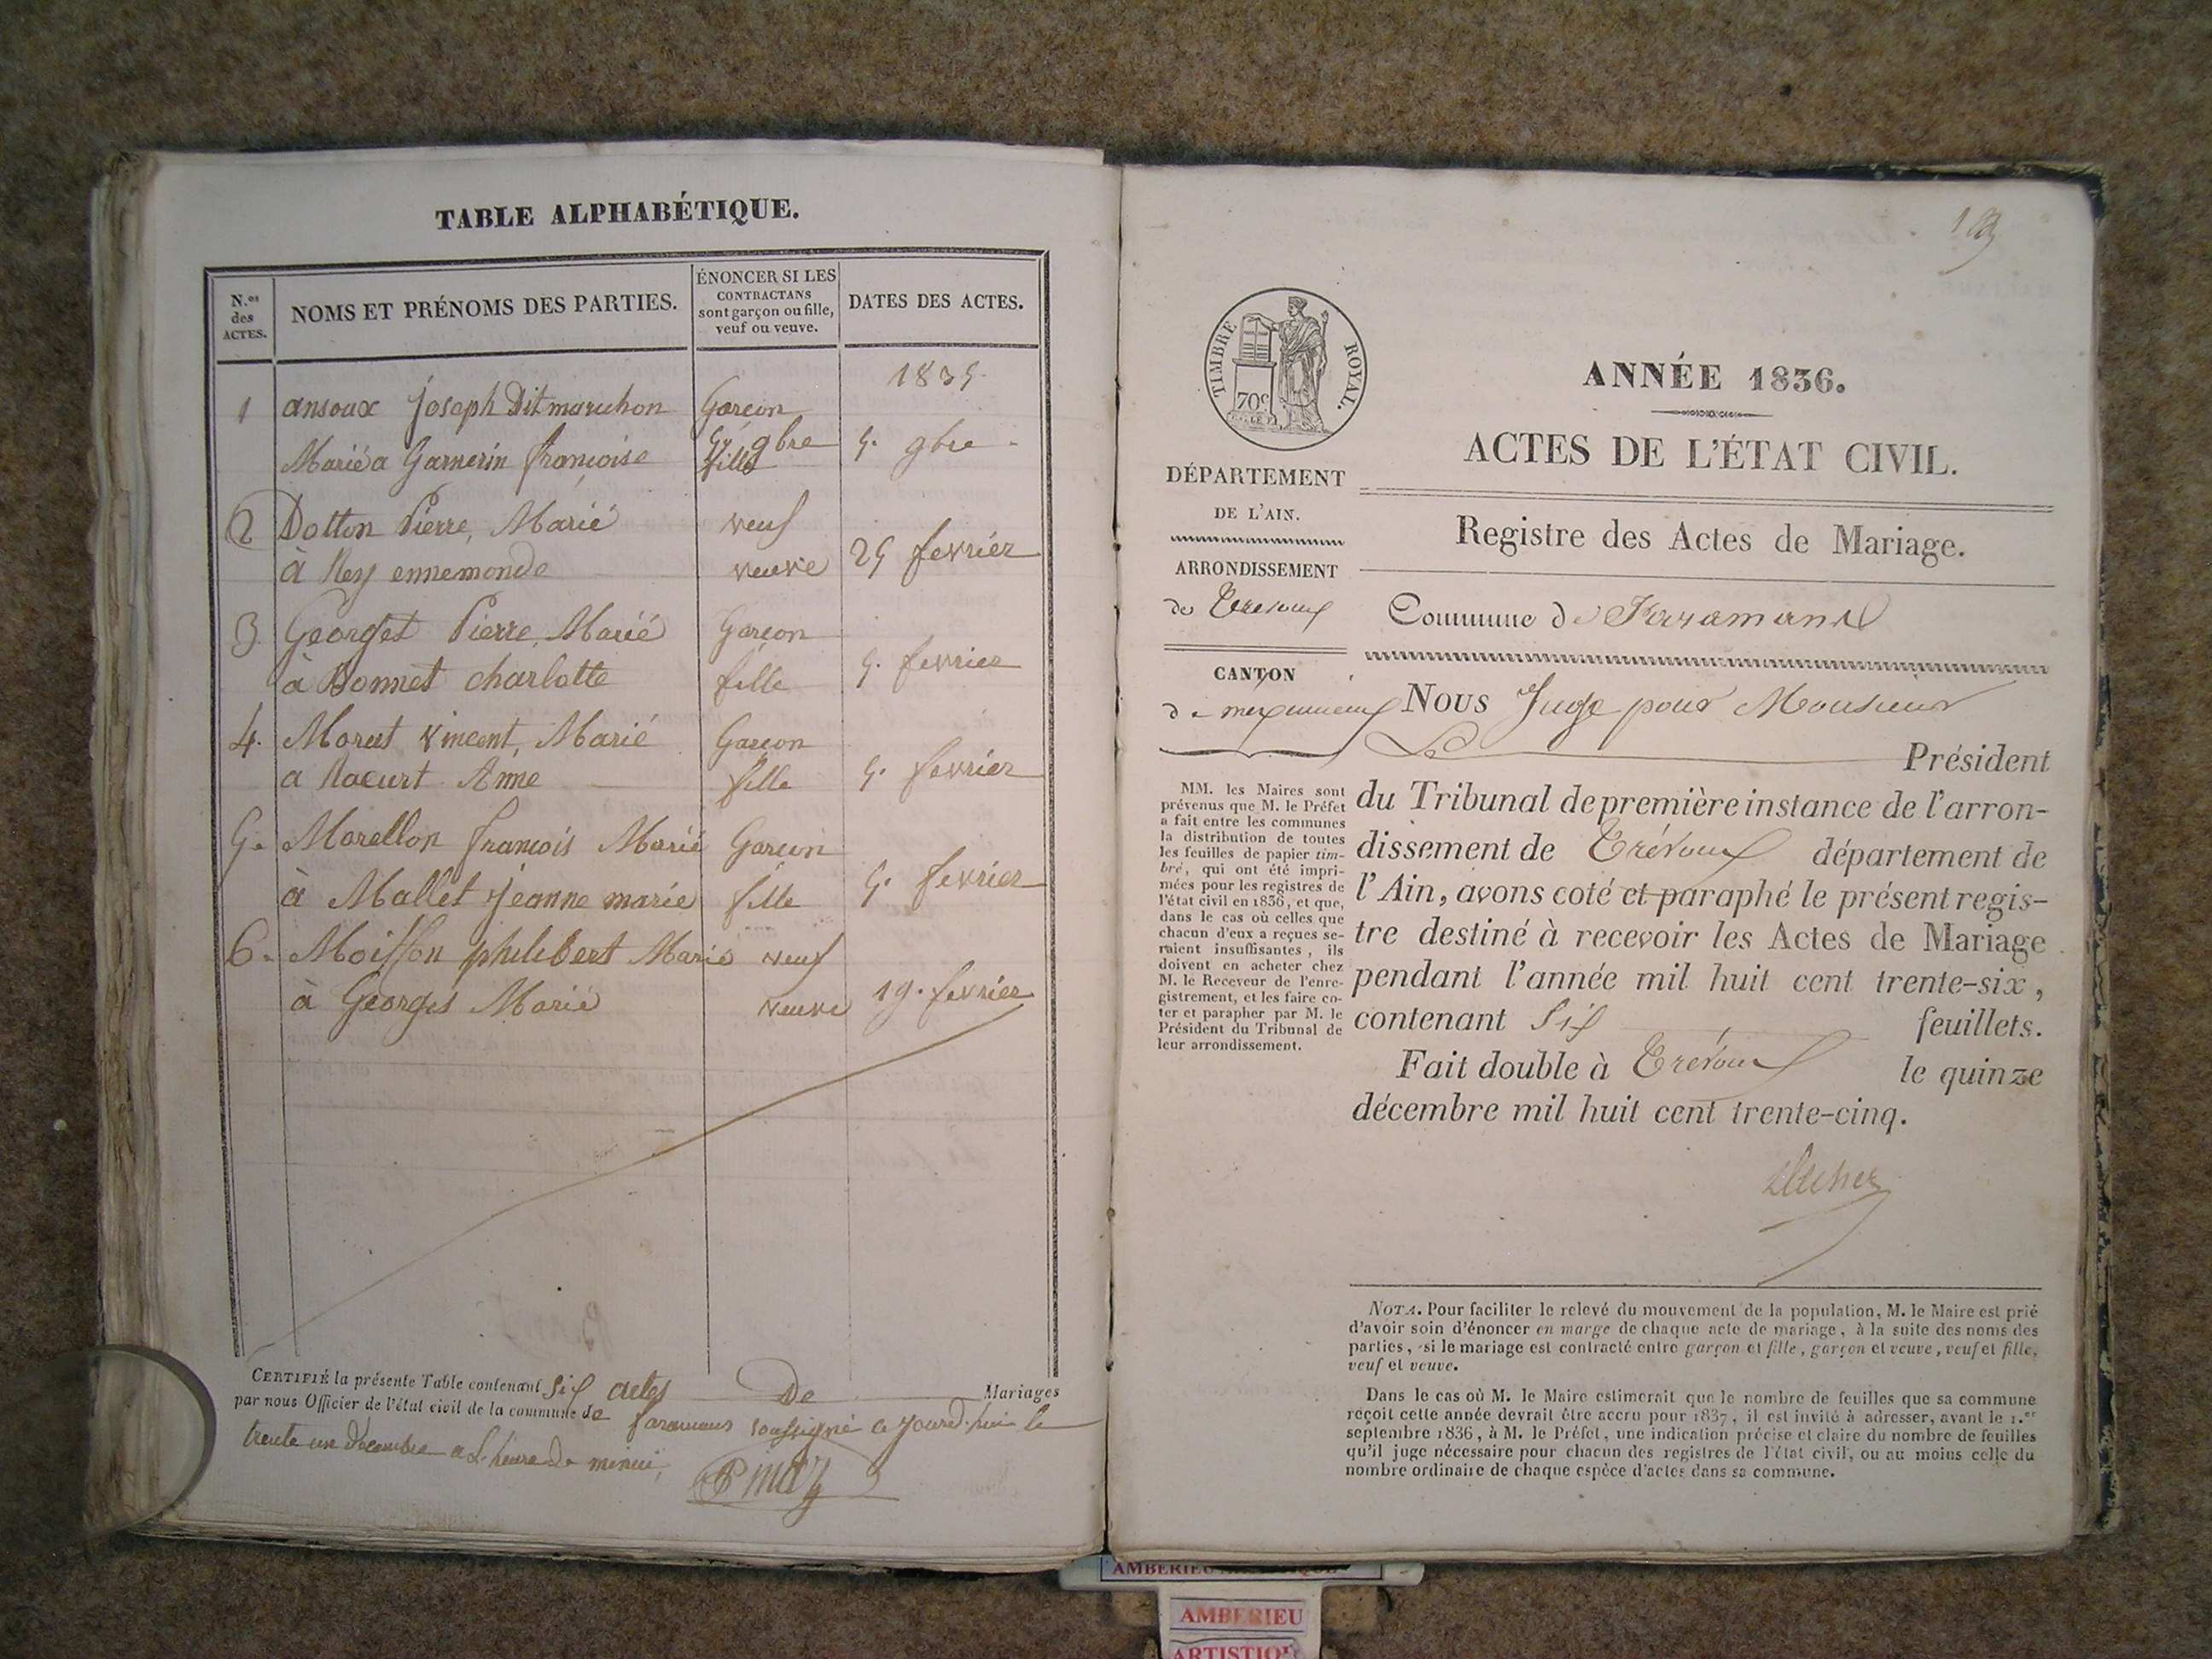 TABLE ALPHABÉTIQUE.
N.os des ACTES.
NOMS ET PRÉNOMS DES PARTIES.
ÉNONCER SI LES
CONTRACTANS
sont garçon ou fille,
veuf ou veuve.
DATES DES ACTES.
1835.
1 ansoux Joseph Dit maruchon Garcon
Marié a Garnerin françoise fille 5. 9bre
2 Dotton Pierre, Marié veuf
à Rey ennemonde veuve 25 fevrier
3 Georget Pierre, Marié Garcon
à Bonnet charlotte fille 5. fevrier
4. Vincent, Marié Garcon
a Anne fille 5. fevrier
5. Morellon francois Marié Garcon
à Mallet Jeanne marie fille 5. fevrier
6. Moisson philibert Marié veuf
à Georges Marie veuve 19. fevrier
CERTIFIÉ la présente Table contenant Six actes De Mariages
par nous Officier de l'état civil de la commune de faramans soussigné ce jourd'hui le
trente un décembre a l'heure de minui,
ANNÉE 1836.
ACTES DE L'ÉTAT CIVIL.
Registre des Actes de Mariage.
TIMBRE ROYAL.
70c
DÉPARTEMENT
DE L'AIN.
ARRONDISSEMENT
de Trevoux
CANTON
de meximieux
Commune de
Nous Juge pour Monsieur
Le Président
du Tribunal de première instance de l'arron-
dissement de Trévoux département de
l'Ain, avons coté et paraphé le présent regis-
tre destiné à recevoir les Actes de Mariage
pendant l'année mil huit cent trente-six,
contenant Six feuillets.
Fait double à Trévoux le quinze
décembre mil huit cent trente-cinq.
MM. les Maires sont
prévenus que M. le Préfet
a fait entre les communes
la distribution de toutes
les feuilles de papier tim-
bré, qui ont été impri-
mées pour les registres de
l'état civil en 1836, et que,
dans le cas où celles que
chacun d'eux a reçues se-
raient insuffisantes, ils
doivent en acheter chez
M. le Receveur de l'enre-
gistrement, et les faire co-
ter et parapher par M. le
Président du Tribunal de
leur arrondissement.
NOTA. Pour faciliter le relevé du mouvement de la population, M. le Maire est prié
d'avoir soin d'énoncer en marge de chaque acte de mariage, à la suite des noms des
parties, si le mariage est contracté entre garçon et fille, garçon et veuve, veuf et fille,
veuf et veuve.
Dans le cas où M. le Maire estimerait que le nombre de feuilles que sa commune
reçoit cette année devrait être accru pour 1837, il est invité à adresser, avant le 1.er
septembre 1836, à M. le Préfet, une indication précise et claire du nombre de feuilles
qu'il juge nécessaire pour chacun des registres de l'état civil, ou au moins celle du
nombre ordinaire de chaque espèce d'actes dans sa commune.
AMBERIEU
AMBERIEU